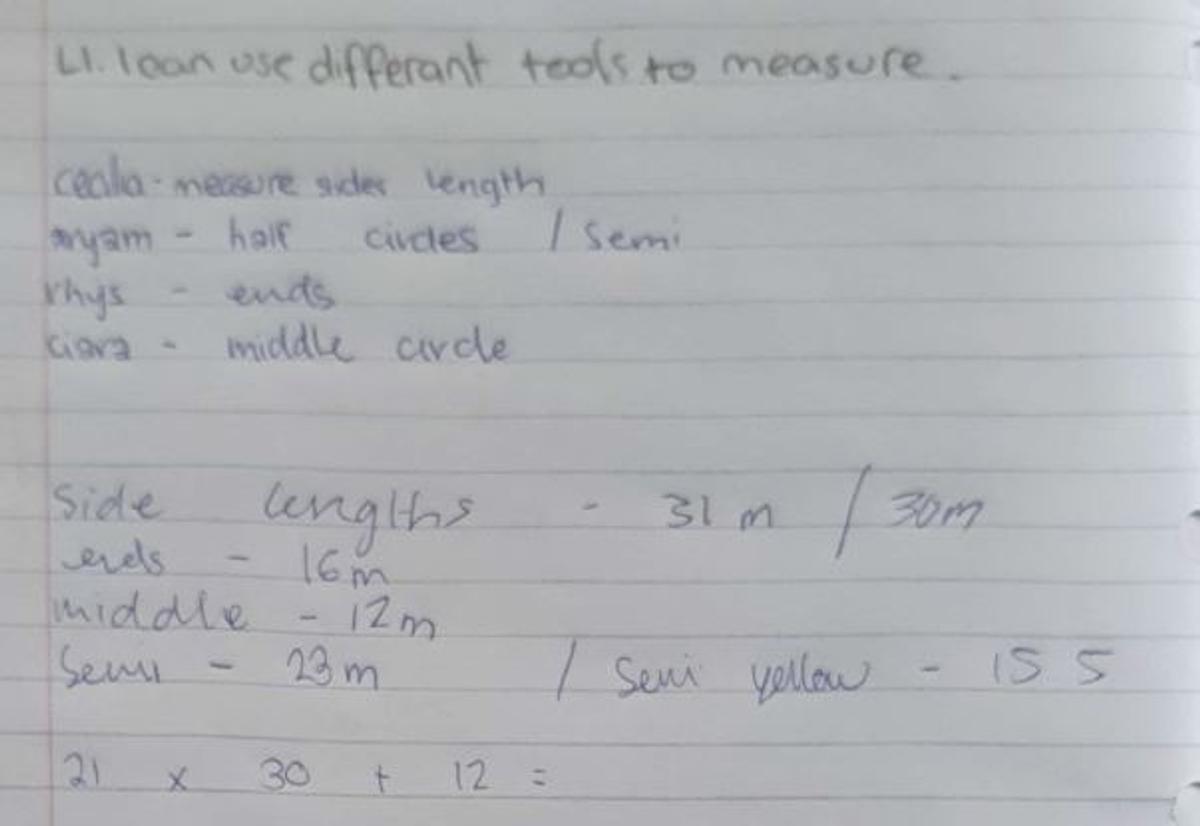 LI. I can use differant tools to measure.
cealia - measure sides length
aryam - half circles / semi
rhys - ends
ciara - middle circle
side lengths - 31 m / 30m
ends - 16m
middle - 12m
Semi - 23m / Semi yellow - 15 5
21 x 30 + 12 =